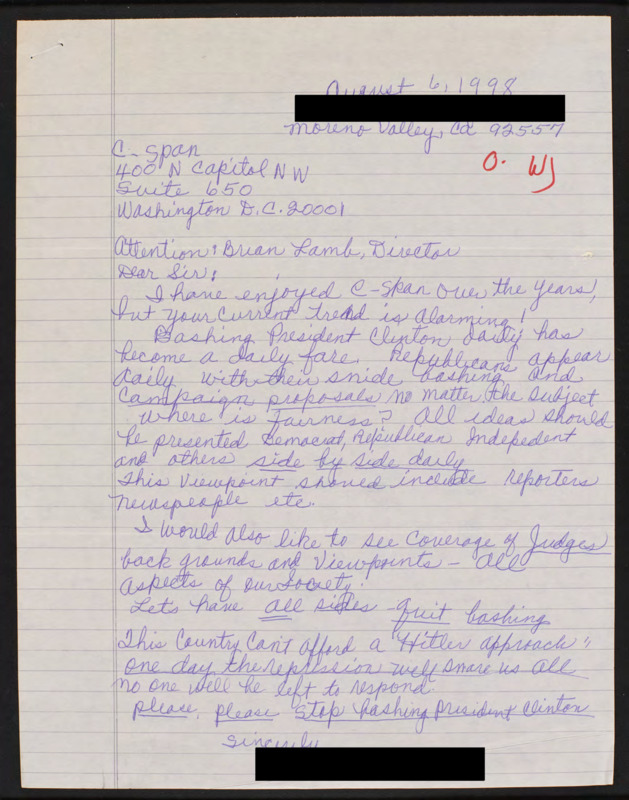 August 6, 1998
Moreno Valley, Ca 92557
O. WJ
C-Span
400 N Capitol NW
Suite 650
Washington D.C. 20001
Attention: Brian Lamb, Director
Dear Sir:
I have enjoyed C-Span over the years,
but your current trend is alarming!
Bashing President Clinton daily has
become a daily fare. Republicans appear
daily with their snide bashing and
campaign proposals no matter the subject
Where is fairness? All ideas should
be presented Democrat, Republican Indepedent
and others side by side daily
This viewpoint should include reporters
newspeople etc.
I would also like to see coverage of Judges
back grounds and viewpoints - all
aspects of our society.
Lets have all sides - quit bashing
This Country can't afford a "Hitler approach";
one day the repression will snare us all
no one will be left to respond.
please, please stop bashing President Clinton
Sincerely